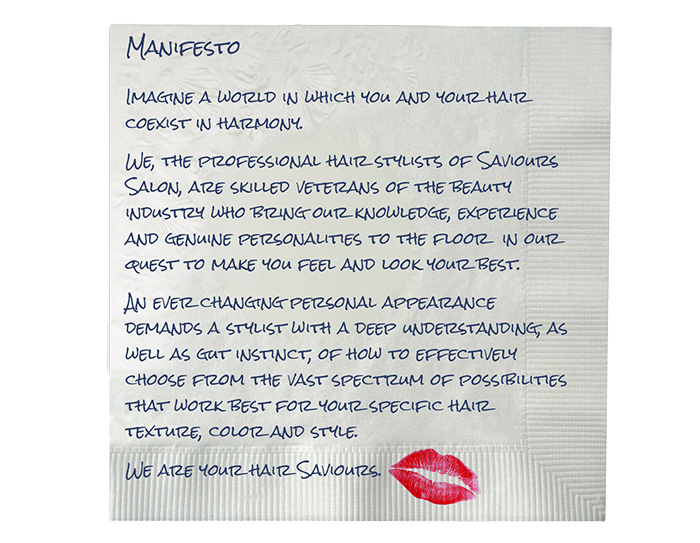 Manifesto
Imagine a world in which you and your hair
coexist in harmony.
We, the professional hair stylists of Saviours
Salon, are skilled veterans of the beauty
industry who bring our knowledge, experience
and genuine personalities to the floor in our
quest to make you feel and look your best.
An ever changing personal appearance
demands a stylist with a deep understanding, as
well as gut instinct, of how to effectively
choose from the vast spectrum of possibilities
that work best for your specific hair
texture, color and style.
We are your hair Saviours.